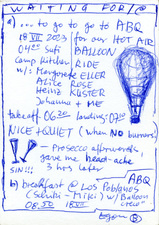 WAITING FOR/@
a) ... to go to go to ABQ
18 VII 2023 for our HOT AIR
04:20 Sufi BALLOON
Camp kitchen RIDE
w/: Margarete ELLER
Alice ROSE
Heinz KUSTER
Johanna + ME
take off. 06:30 landing: 07:20
NICE + QUIET (when NO burners)
- Prosecco afterwards
gave me head-ache
SIN!!! 3 hrs later
ABQ
b) breakfast @ Los Poblanos
w/ Balloon
crew
08:50 18 VII